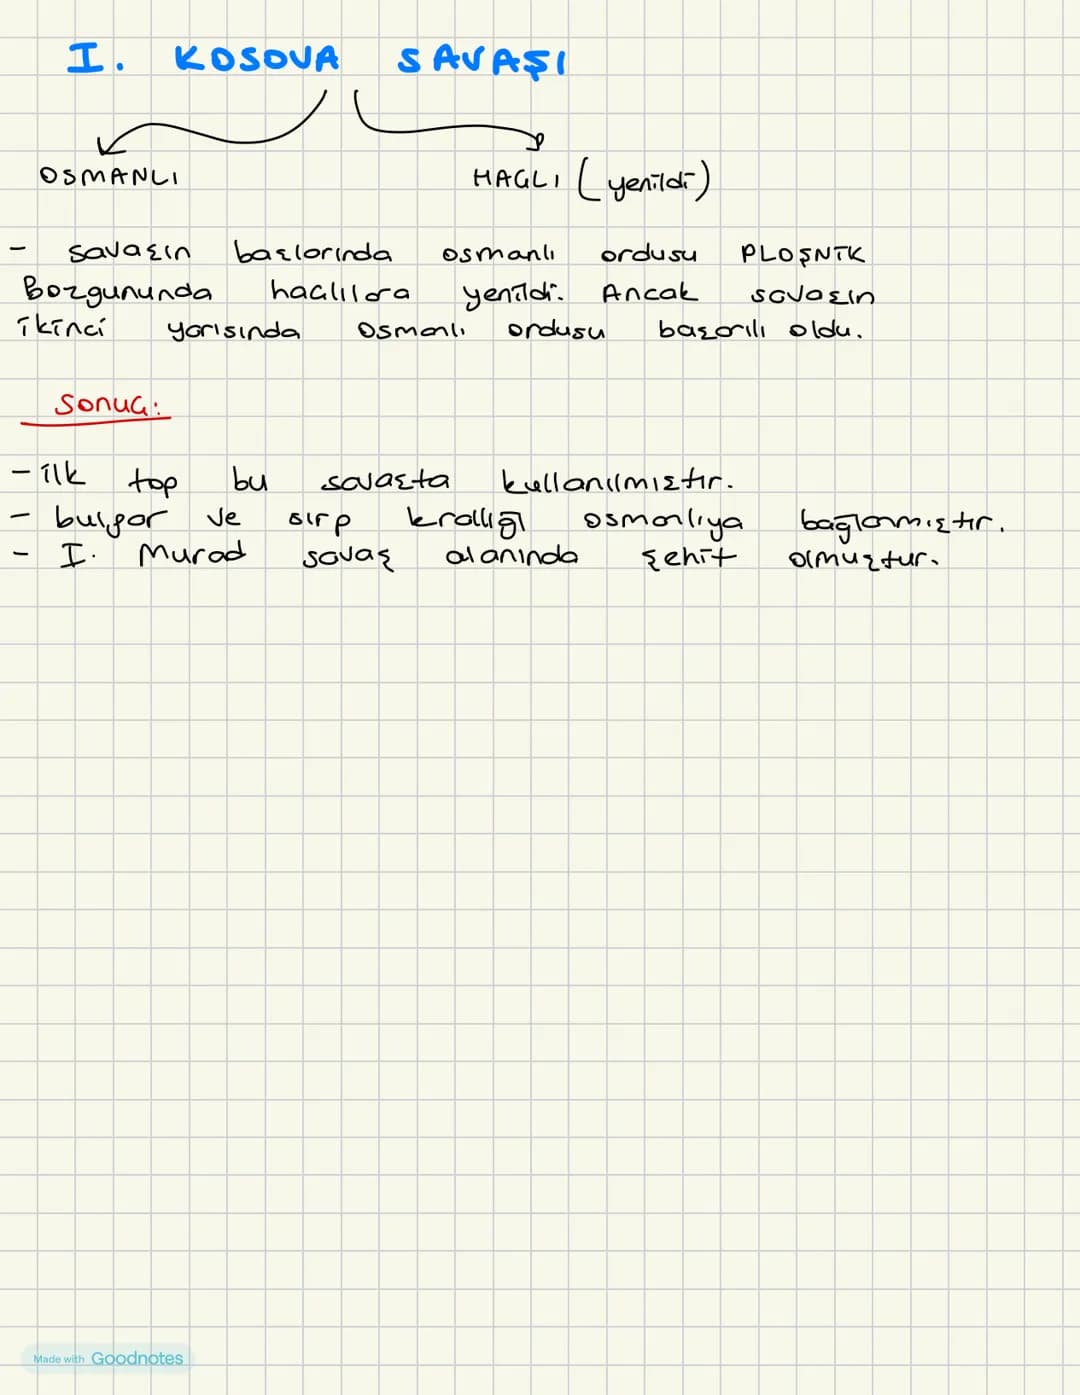 I. KOSOVA SAVAŞI
OSMANLI HAÇLI (yenildi)
- savaşın başlarında osmanlı ordusu PLOŞNİK
Bozgununda haçlılara yenildi. Ancak savaşın
ikinci yarısında osmanlı ordusu başarılı oldu.
Sonuç:
- ilk top bu savaşta kullanılmıştır.
- bulgar ve sırp krallığı osmanlıya bağlanmıştır.
- I. Murad savaş alanında şehit olmuştur.
Made with Goodnotes